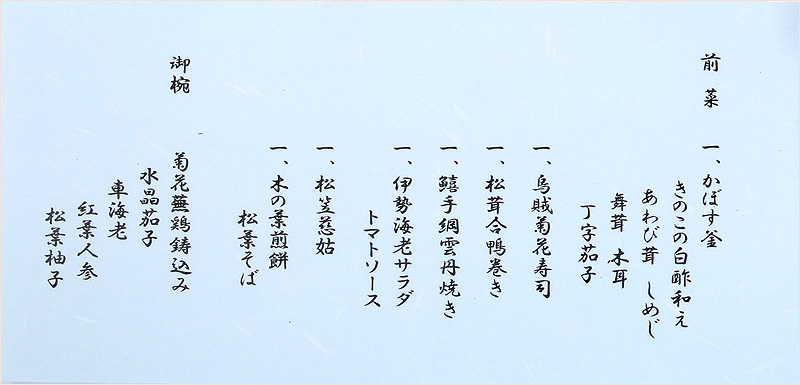 前菜 一、かぼす釜
きのこの白酢和え
あわび茸 しめじ
舞茸 木耳
丁字茄子
一、烏賊菊花寿司
一、松茸合鴨巻き
一、鱚手綱雲丹焼き
一、伊勢海老サラダ
トマトソース
一、松笠慈姑
一、木の葉煎餅
松葉そば
御椀 菊花蕪鶏鋳込み
水晶茄子
車海老
紅葉人参
松葉柚子